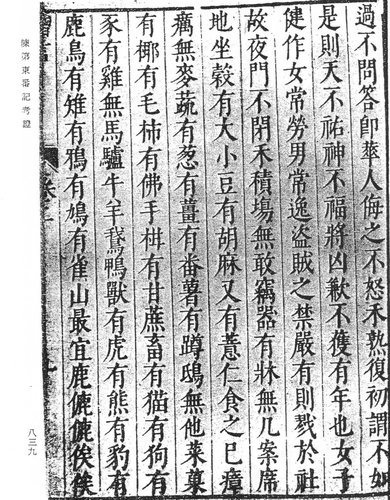 過不問答即華人侮之不怒禾熟復初謂不如
是則天不祐神不福將凶歉不獲有年也女子
健作女常勞男常逸盜賊之禁嚴有則戮於社
故夜門不閉禾積場無敢竊器有牀無几案席
地坐穀有大小豆有胡麻又有薏仁食之已瘴
癘無麥蔬有葱有薑有番薯有蹲鴟無他菜菓
有椰有毛柿有佛手柑有甘蔗畜有猫有狗有
豕有雞無馬驢牛羊鵝鴨獸有虎有熊有豹有
鹿鳥有雉有鴉有鳩有雀山最宜鹿儦儦俟俟
陳第東番記考證
八三九